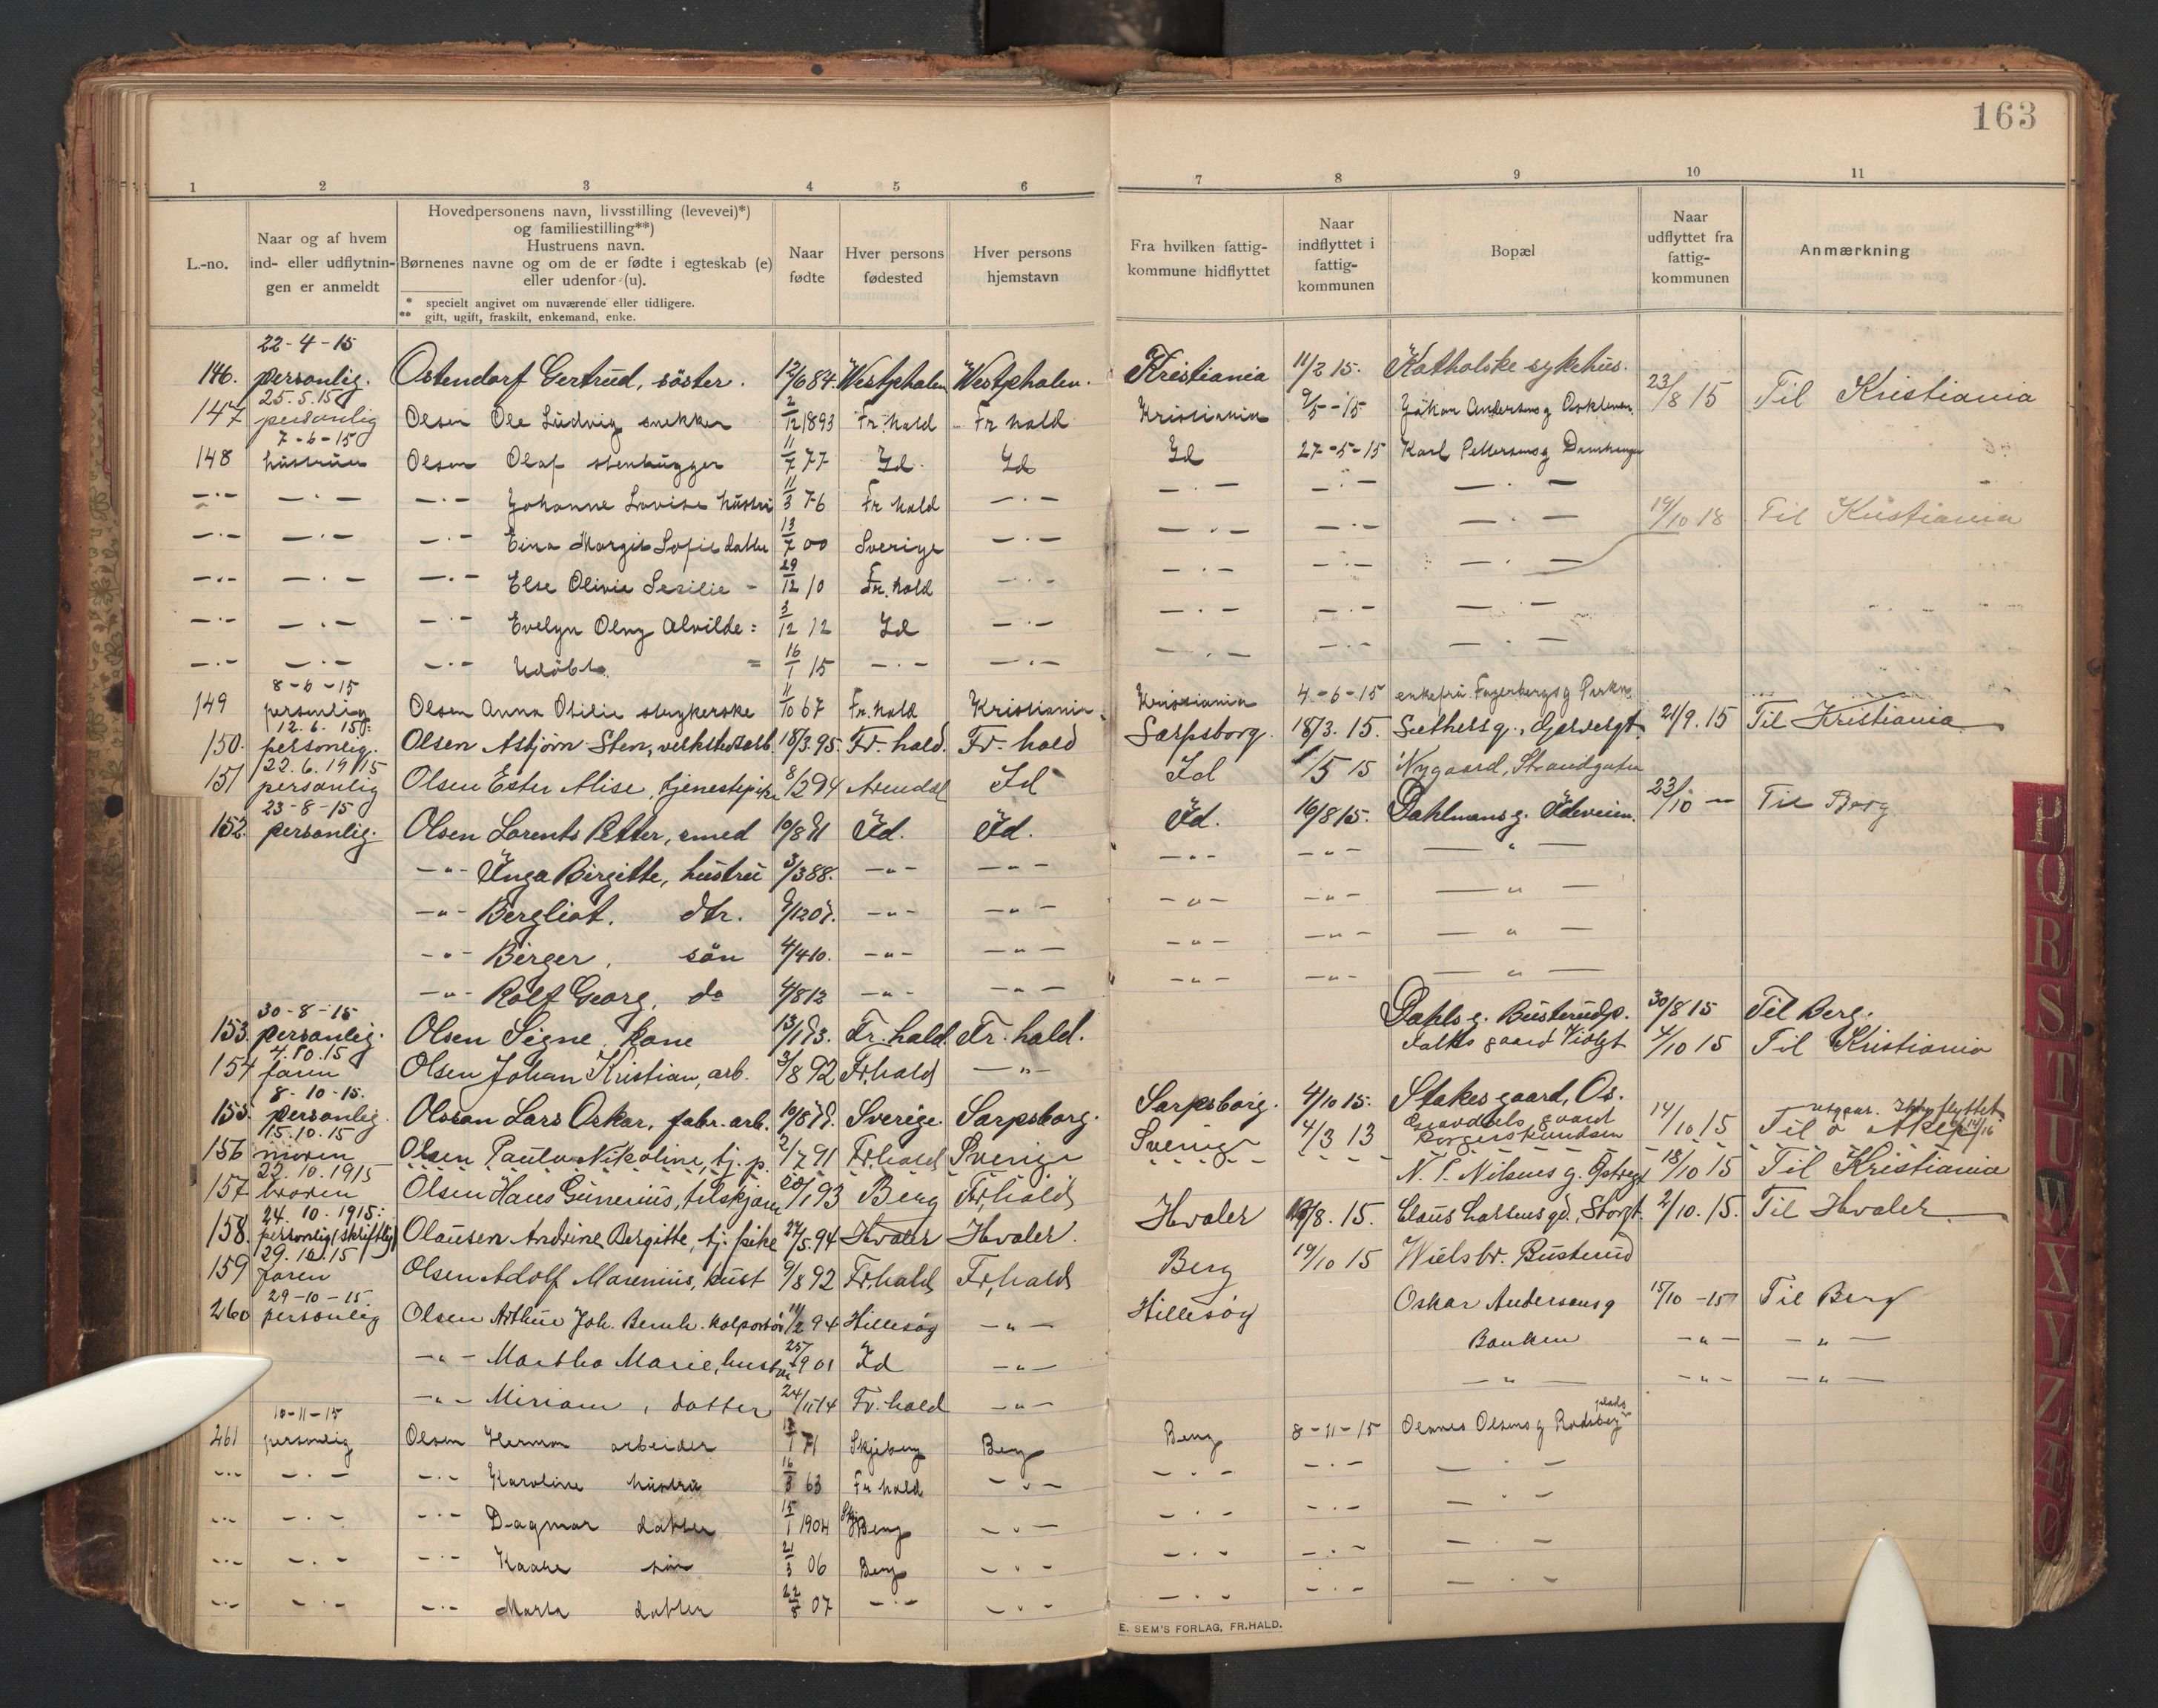 163
1 2 3 4 5 6 7 8 9 10 11
L.-no.
Naar og af hvem
ind- eller udflytnin-
gen er anmeldt
Hovedpersonens navn, livsstilling (levevei)*)
og familiestilling**)
Hustruens navn.
Børnenes navne og om de er fødte i egteskab (e)
eller udenfor (u).
* specielt angivet om nuværende eller tidligere.
** gift, ugift, fraskilt, enkemand, enke.
Naar
fødte
Hver persons
fødested
Hver persons
hjemstavn
Fra hvilken fattig-
kommune hidflyttet
Naar
indflyttet i
fattig-
kommunen
Bopæl
Naar
udflyttet fra
fattig-
kommunen
Anmærkning
22-4-15
146. personlig. Ostendorf Gertrud, söster. 12/6 84. Westphalen Westphalen. Kristiania 11/2 15. Katholske sykehus.
25.5.15
147 personlig Olsen Ole Ludvig snekker 2/12 1893 Fr.hald Fr hald Kristiania 9/5-15 Håkon Andersens g 23/8 15 Til Kristiania
7-6-15
148 hustruen Olsen Olaf stenhugger 11/7 77 Id Id Id 27-5-15 Karl Pettersens g
-"- -"- -"- Johanne Lovise hustru 11/3 76 Fr hald -"- -"- -"- -"-
-"- -"- -"- Eina Margit Sofie datter 13/7 00 Sverige -"- -"- -"- -"- 19/10 18 Til Kristiania
-"- -"- -"- Else Olivie Sesilie - 29/12 10 Fr. hald -"- -"- -"- -"-
-"- -"- -"- Evelyn Olny Alvilde = 3/12 12 Id -"- -"- -"- -"-
-"- -"- -"- Udöbt = 16/1 15 -"- -"- -"- -"- -"-
8-6-15
149 personlig Olsen Anna Otilie strykerske 11/10 67 Fr.hald Kristiania Kristiania 4-6-15 enkefru Fagerbergs g
12.6.15
150. personlig. Olsen Asbjörn Sten, verkstedsarb. 18/3 95. Fr.hald. Fr.hald Sarpsborg. 18/3. 15. 21/9. 15 Til Kristiania
22.6.1915
151 personlig Olsen Ester Alise, tjenestepike 8/2 94 Arendal Id Id 1/5 15 Nygaard, Strandgaten
23-8-15
152. personlig. Olsen Lorents Petter, smed 10/8 81 Id. Id. Id. 16/8 15. Dahlmans g. Ideveien. 23/10 - Til Berg
-"- Inga Birgitte, hustru 3/3 88. -"- -"- -"- -"- -"-
-"- Bergliot, dtr. -"- -"- -"- -"- -"-
-"- Birger, sön 4/4 10. -"- -"- -"- -"- -"-
-"- Rolf Georg, do 4/8 12 -"- -"- -"- -"- -"-
30-8-15
153. personlig. Olsen Signe, kone Fr.hald. Fr.hald. Dahls g. Busterudp. 30/8 15 Til Berg.
4.10.15
154 faren Olsen Johan Kristian, arb. 3/8 92 Fr.hald -"- Falks gaard Violgt 4/10 15 Til Kristiania
8-10-15.
155. personlig. Olsson Lars Oskar, fabr.arb. Sverige Sarpsborg. Sarpsborg. 4/10 15. Stakes gaard, Os.
15.10.15
156 moren Olsen Paula Nikoline, tj.p. 2/7 91 Fr.hald Sverige Sverige 4/3 13 14/10 15 Til
22.10.1915
157 broren Olsen Hans Gunerius, 20/1 93 Berg Fr.hald N. P. Nilsens g. 18/10 15 Til Kristiania
24.10.1915:
158. personlig (skriftlig) Olausen Andrine Bergitte, tj. pike 27/5. 94 Hvaler Hvaler. Hvaler 19/8. 15. Claus Larsens gd., Storgt. 2/10. 15. Til Hvaler
29.10.15
159 faren Olsen Adolf Marenius, kusk 9/8 92 Fr.hald Fr.hald Berg 19/10 15 Wiels br. Busterud
29-10-15
260 personlig Olsen Arthur Joh. Bernh. kolportör 14/2 94 Hillesöy -"- Hillesöy Oskar Andersens g 15/10-15 Til Berg
-"- Martha Marie, hustru 25/9 01 Id -"- Banken -"- -"-
-"- Miriam, datter 24/11 14 Fr.hald -"- -"- -"- -"-
10-11-15
261 personlig Olsen Herman arbeider Skjeberg Berg Berg 8-11-15 Olsens g
-"- -"- -"- Karoline hustru 16/3 63 Fr hald -"- -"- -"- -"-
-"- -"- -"- Dagmar datter 15/1 1904 Berg -"- -"- -"- -"-
-"- -"- -"- Kaare sön 21/3 06 Berg -"- -"- -"- -"-
-"- -"- -"- Marta datter 22/8 07 -"- -"- -"- -"- -"-
E. SEM'S FORLAG, FR.HALD.
P
Q
R
S
T
U
W
X
Y
Z
Æ
Ø